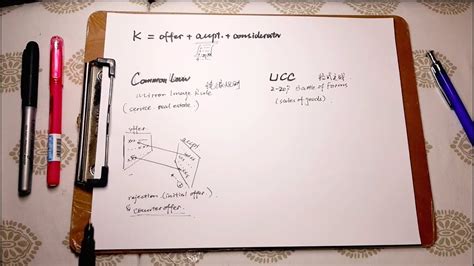 K = offer + acpt. + consideration
Common Law
Mirror Image Rule
(service. real estate.)
UCC
2-207 Battle of Forms
(sales of goods)
offer
acpt.
rejection (initial offer.)
& counteroffer.